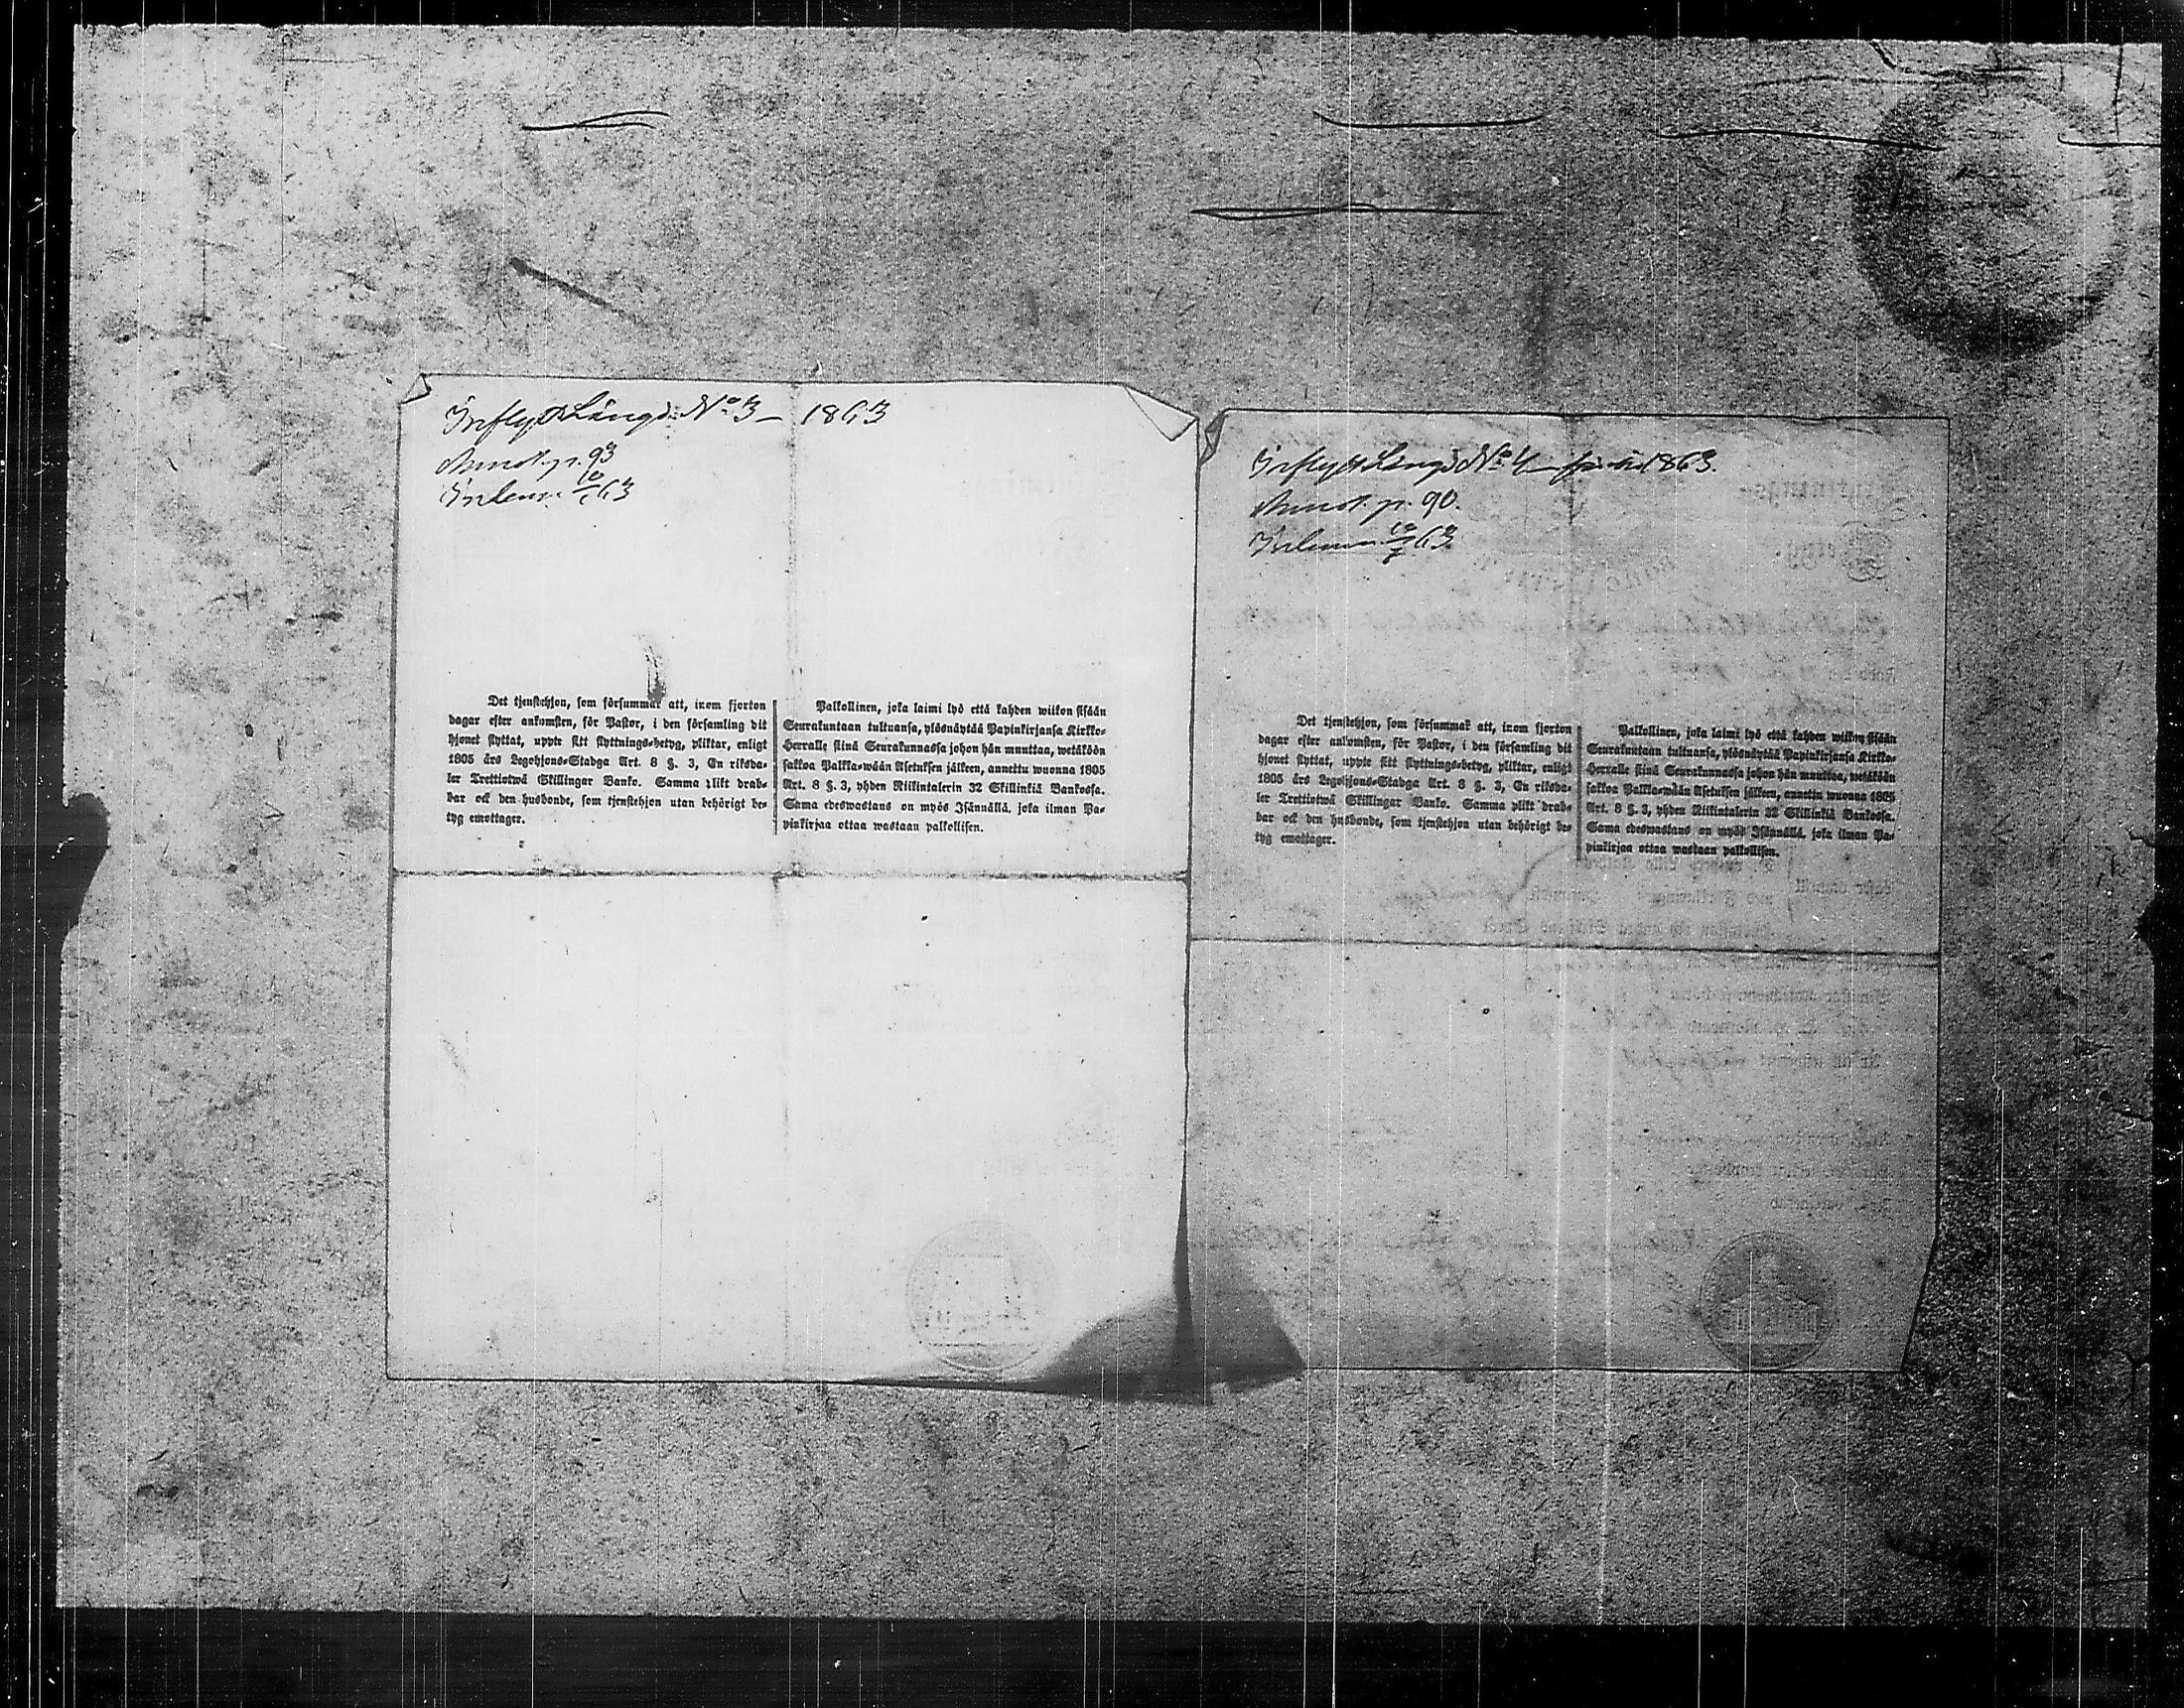 Inflytt Längd. No 3 – 1863
Annot. p. 93
Inlemn. 63
Det tjenstehjon, som försummar att, inom fjorton
dagar efter ankomsten, för Pastor, i den församling dit
hjonet flyttat, uppte sitt flyttnings-betyg, pliktar, enligt
1805 års Legohjons-Stadga Art. 8 §. 3, En riksda-
ler Trettiotwå Skillingar Banko. Samma plikt drab-
bar ock den husbonde, som tjenstehjon utan behörigt be-
tyg emottager.
Palkollinen, joka laimi lyö että kahden wiikon sisään
Seurakuntaan tultuansa, ylösnäytää Papinkirjansa Kirkko-
Herralle siinä Seurakunnassa johon hän muuttaa, wetäköön
sakkoa Palkka-wään Asetuksen jälkeen, annettu wuonna 1805
Art. 8 §. 3, yhden Riikintalerin 32 Skillinkiä Bankossa.
Sama edeswastaus on myös Isännällä, joka ilman Pa-
pinkirjaa ottaa wastaan palkollisen.
Inflytt Längd No 4 1863.
Annot. p. 90.
Inlemn. 63.
Det tjenstehjon, som försummar att, inom fjorton
dagar efter ankomsten, för Pastor, i den församling dit
hjonet flyttat, uppte sitt flyttnings-betyg, pliktar, enligt
1805 års Legohjons-Stadga Art. 8 §. 3, En riksda-
ler Trettiotwå Skillingar Banko. Samma plikt drab-
bar ock den husbonde, som tjenstehjon utan behörigt be-
tyg emottager.
Palkollinen, joka laimi lyö että kahden wiikon sisään
Seurakuntaan tultuansa, ylösnäytää Papinkirjansa Kirkko-
Herralle siinä Seurakunnassa johon hän muuttaa, wetäköön
sakkoa Palkka-wään Asetuksen jälkeen, annettu wuonna 1805
Art. 8 §. 3, yhden Riikintalerin 32 Skillinkiä Bankossa.
Sama edeswastaus on myös Isännällä, joka ilman Pa-
pinkirjaa ottaa wastaan palkollisen.